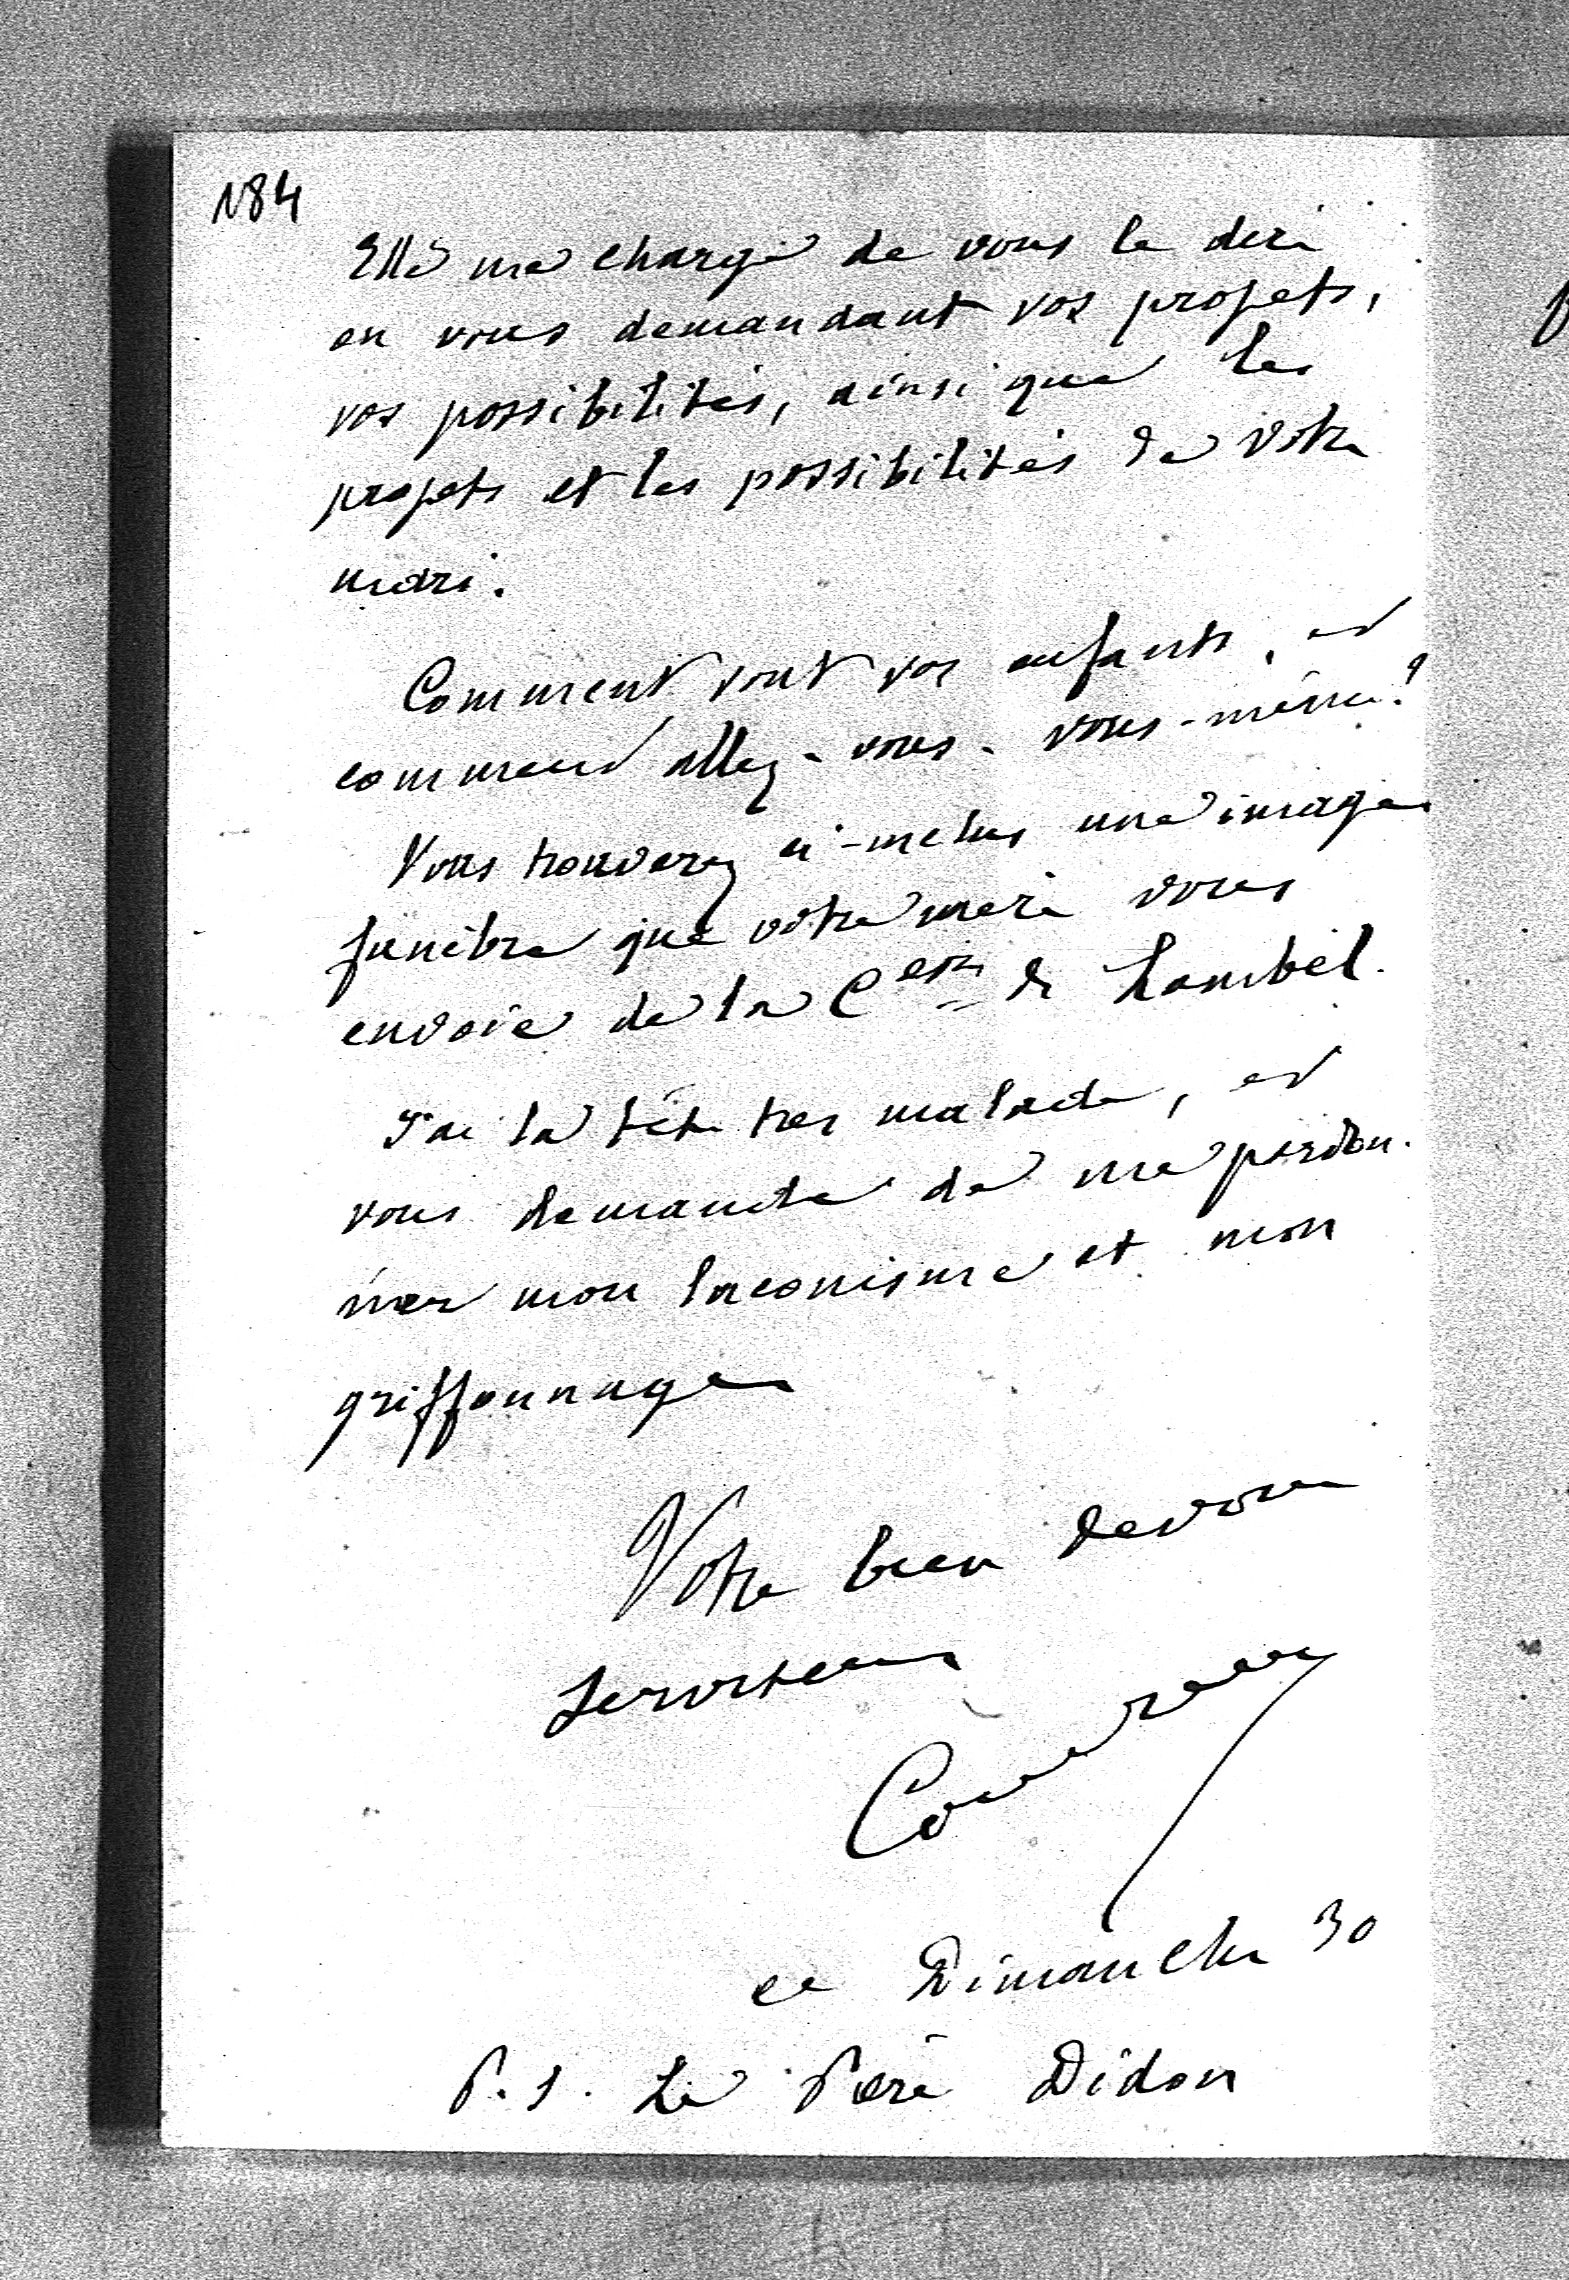 1884
Elle me charge de vous le dire
en vous demandant vos projets,
vos possibilités, ainsi que les
projets et les possibilités de votre
mari.
Comment vont vos enfants, et
comment allez-vous-vous-même?
Vous trouverez ci-inclus une image
funèbre que votre mère vous
envoie de la Ctesse de Lambel.
J'ai la tête très malade, et
vous demande de me pardon-
ner mon laconisme et mon
griffonnage
Votre bien dévoué
serviteur
ce Dimanche 30
P.S. Le Père Didon